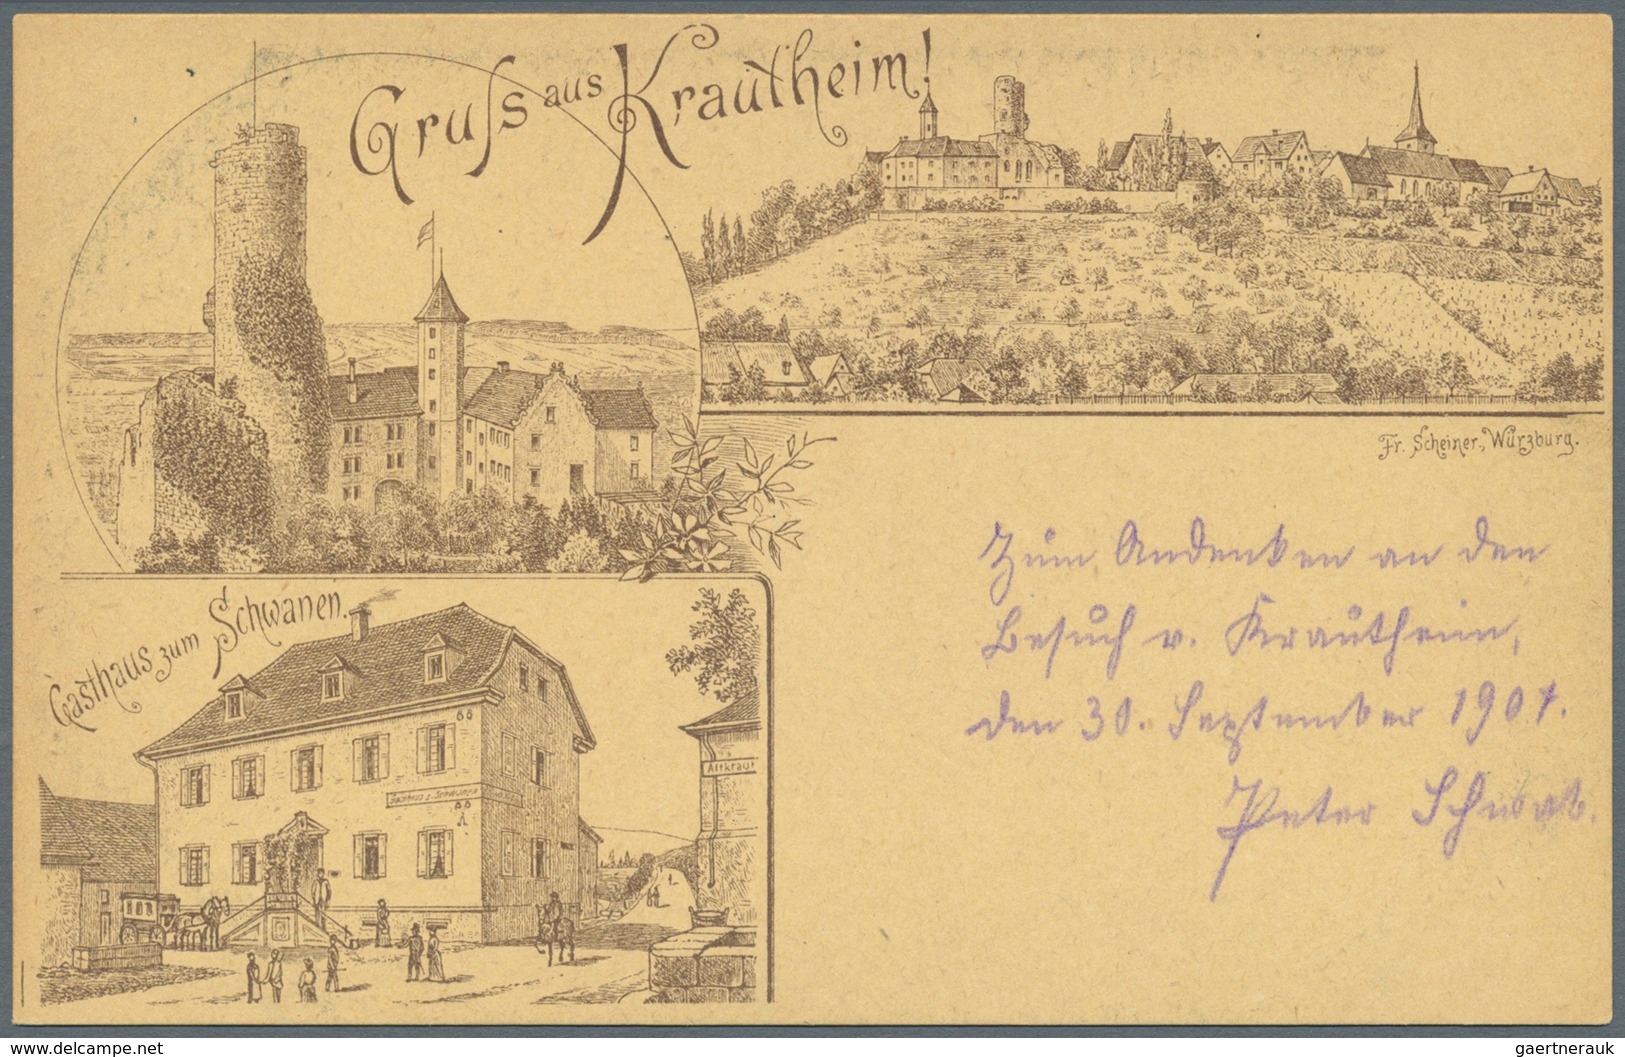 Gruss aus Krautheim!
Fr. Scheiner, Würzburg.
Gasthaus zum Schwanen.
Gasthaus z. Schwanen
Altkraut
Zum Andenken an den
Besuch v. Krautheim,
den 30. September 1901.
Peter Schwab.
www.delcampe.net
gaertnerauk